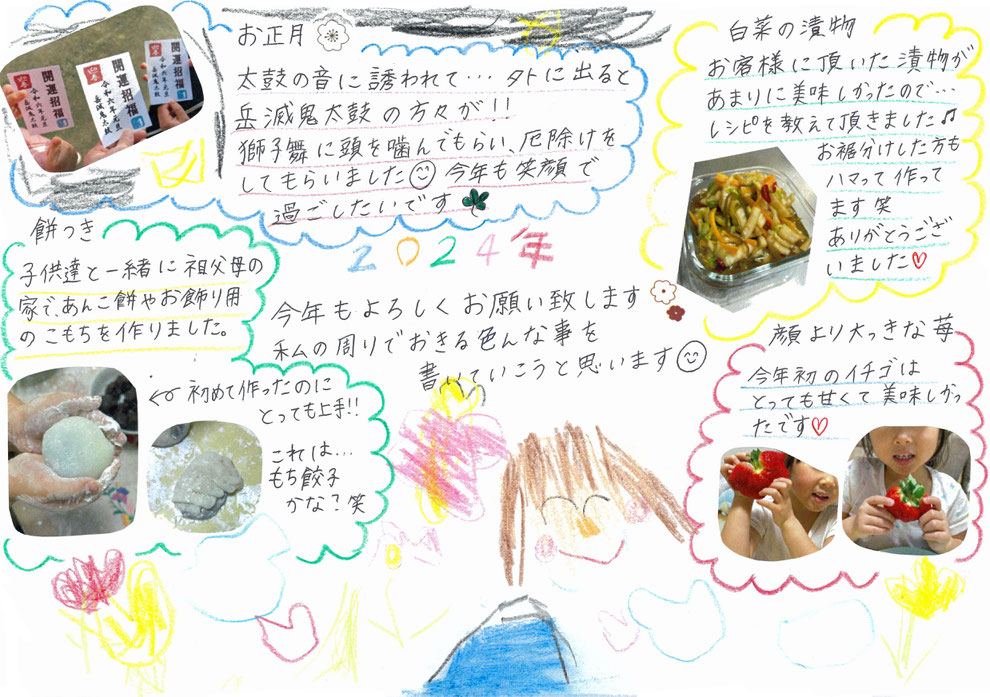 お正月
太鼓の音に誘われて… 外に出ると
岳滅鬼太鼓の方々が!!
獅子舞に頭を噛んでもらい、厄除けを
してもらいました 今年も笑顔で
過ごしたいです
開運招福
令和六年元旦
岳滅鬼太鼓
開運招福
令和六年元旦
岳滅鬼太鼓
開運招福
令和六年元旦
岳滅鬼太鼓
白菜の漬物
お客様に頂いた漬物が
あまりに美味しかったので…
レシピを教えて頂きました♫
お裾分けした方も
ハマって作って
ます笑
ありがとうござ
いました♡
餅つき
子供達と一緒に祖父母の
家で、あんこ餅やお飾り用
のこもちを作りました。
初めて作ったのに
とっても上手!!
これは…
もち餃子
かな?笑
2024年
今年もよろしくお願い致します
私の周りでおきる色んな事を
書いていこうと思います
顔より大っきな苺
今年初のイチゴは
とっても甘くて美味しかっ
たです♡